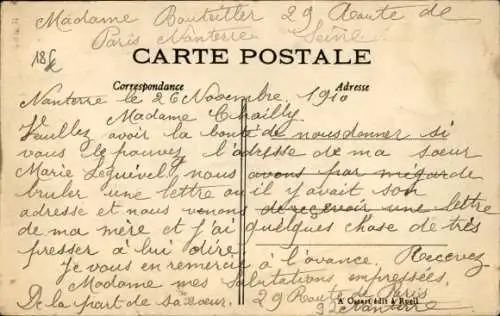 Madame Bouteiller 29 Route de
Paris Nanterre Seine.
18f
CARTE POSTALE
Correspondance Adresse
Nanterre le 26 Novembre 1910
Madame Chailly
Veuillez avoir la bonté de nous donner si
vous le pouvez l'adresse de ma soeur
Marie Lequivel, nous avons par megarde
bruler une lettre ou il y avait son
adresse et nous venons de reçevoir une lettre
de ma mère et j'ai quelques chose de très
presser à lui dire.
Je vous en remercie à l'avance. Recevez
Madame mes Salutations empressées.
De la part de sa soeur. 29 Route de Paris
Nanterre
A Ossart édit à Rueil